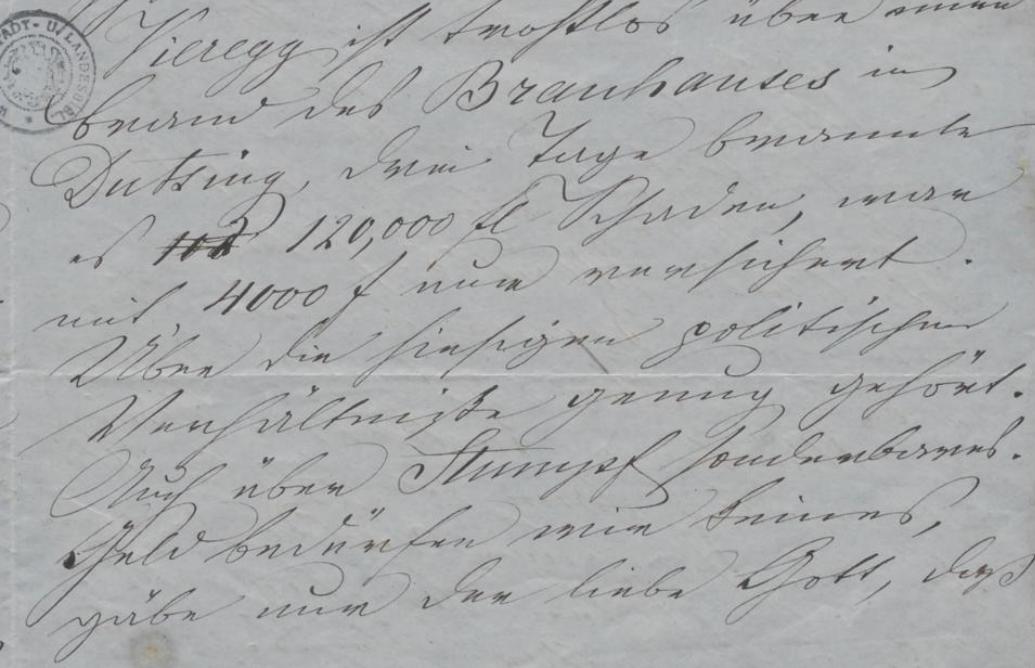 STADT- U. LANDESBIBL
Vieregg ist trostlos über einen
brand des Brauhauses in
Tutzing, drei Tage brannte
es 120,000 fl Schaden, war
mit 4000 f nur versichert.
Über die hiesigen politischen
Verhältniße genug gehört.
Auch über Stumpf sonderbares.
Geld bedürfen wir keines,
gäbe nur der liebe Gott, daß